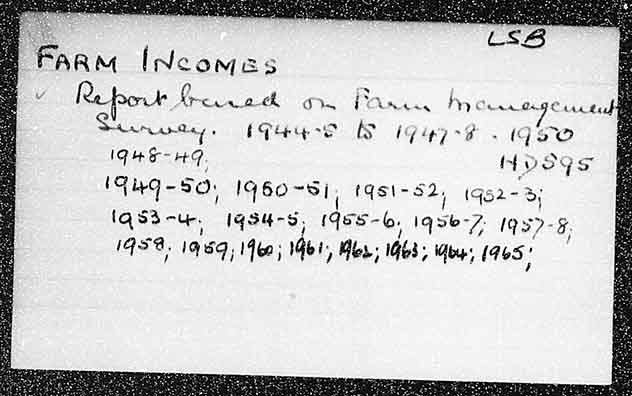 LSB
FARM INCOMES
✓ Report based on Farm Management
Survey. 1944-5 to 1947-8. 1950
1948-49; HD595
1949-50; 1950-51; 1951-52; 1952-3;
1953-4; 1954-5; 1955-6; 1956-7; 1957-8;
1958; 1959; 1960; 1961; 1962; 1963; 1964; 1965;